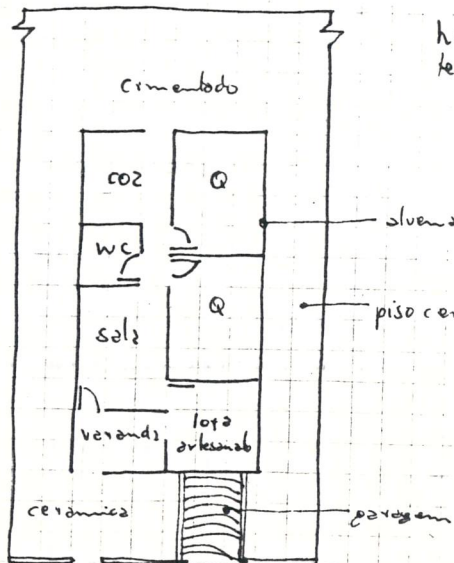 h
te
cimentado
coz
Q
alvena
WC
Q
piso cer
sala
varanda
loja
artesanab
cerâmica
garagem